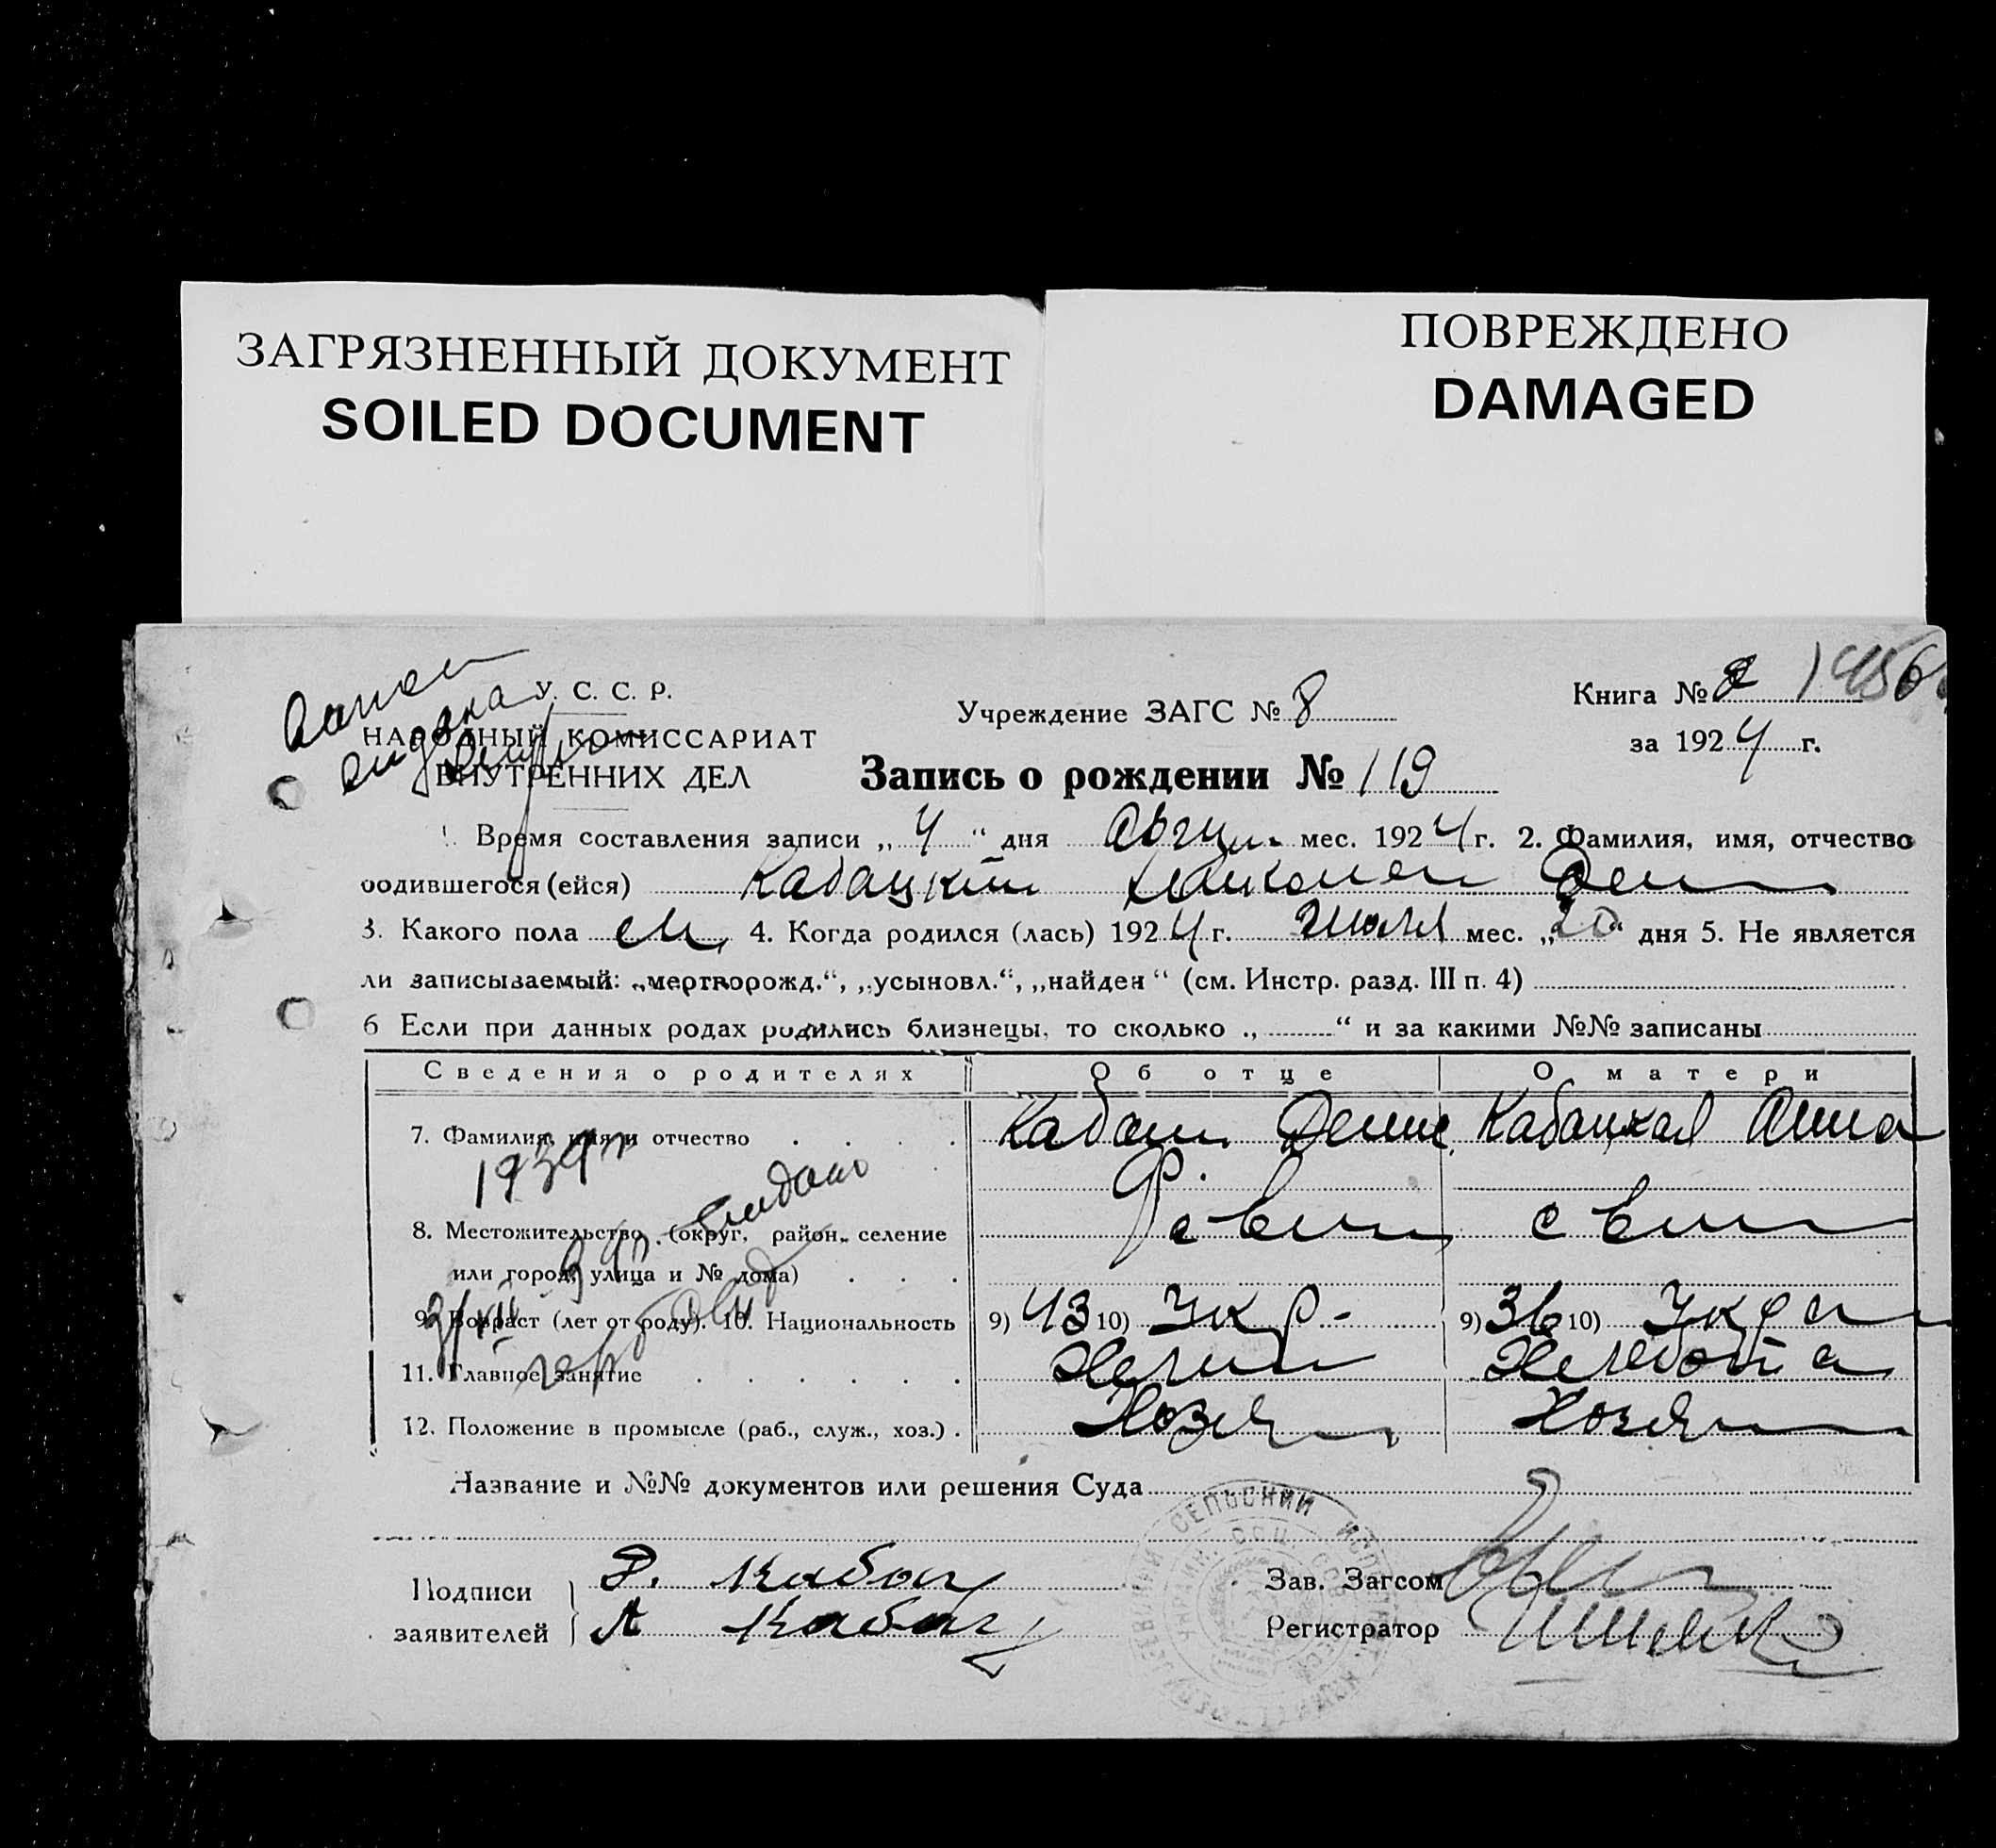 ЗАГРЯЗНЕННЫЙ ДОКУМЕНТ
SOILED DOCUMENT
ПОВРЕЖДЕНО
DAMAGED
У. С. С. Р.
НАРОДНЫЙ КОМИССАРИАТ
ВНУТРЕННИХ ДЕЛ
Учреждение ЗАГС № 8
Книга №
за 1924 г.
Запись о рождении № 119
1. Время составления записи „4“ дня Август мес. 1924 г. 2. Фамилия, имя, отчество
родившегося (ейся) Кабацкий Ден
3. Какого пола м 4. Когда родился (лась) 1924 г. Июля мес. „20“ дня 5. Не является
ли записываемый: „мертворожд.“, „усыновл.“, „найден“ (см. Инстр. разд. III п. 4)
6 Если при данных родах родились близнецы, то сколько „ “ и за какими №№ записаны
Сведения о родителях Об отце О матери
7. Фамилия, имя и отчество . . . . Кабац Денис Кабацкая Анна
Ф.
1934
8. Местожительство (округ, район, селение
или город, улица и № дома) . . .
9. Возраст (лет от роду). 10. Национальность 9) 43 10) Укр- 9) 36 10) Укра
11. Главное занятие . . . . . . Хлебопа
12. Положение в промысле (раб., служ., хоз.) . Хозя Хозя
Название и №№ документов или решения Суда
Подписи
заявителей
Д. Кабац
А Кабац
Зав. Загсом
Регистратор
СЕЛЬСКИЙ
УКРАИН. СОЦ. СОВ.